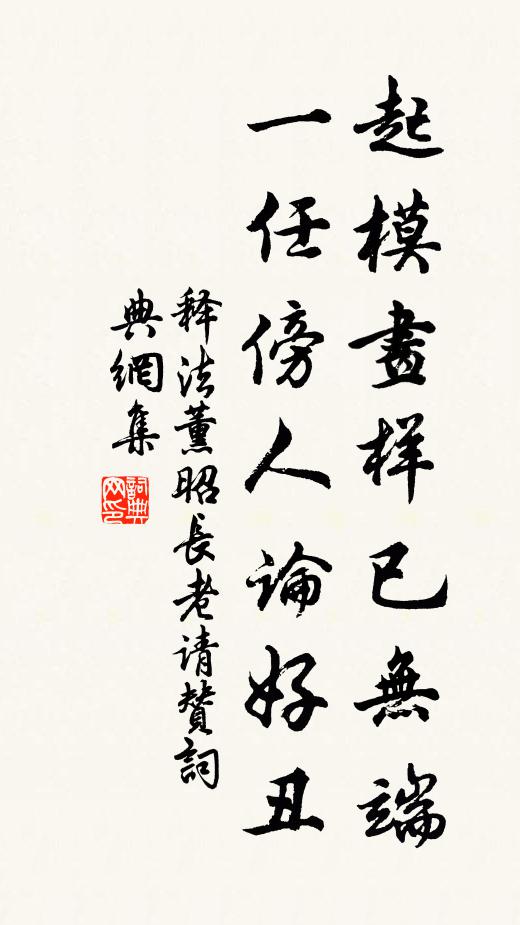 起模畫样已無端
一任傍人論好丑
释法薰昭長老请赞詞
典網集
詞典网印